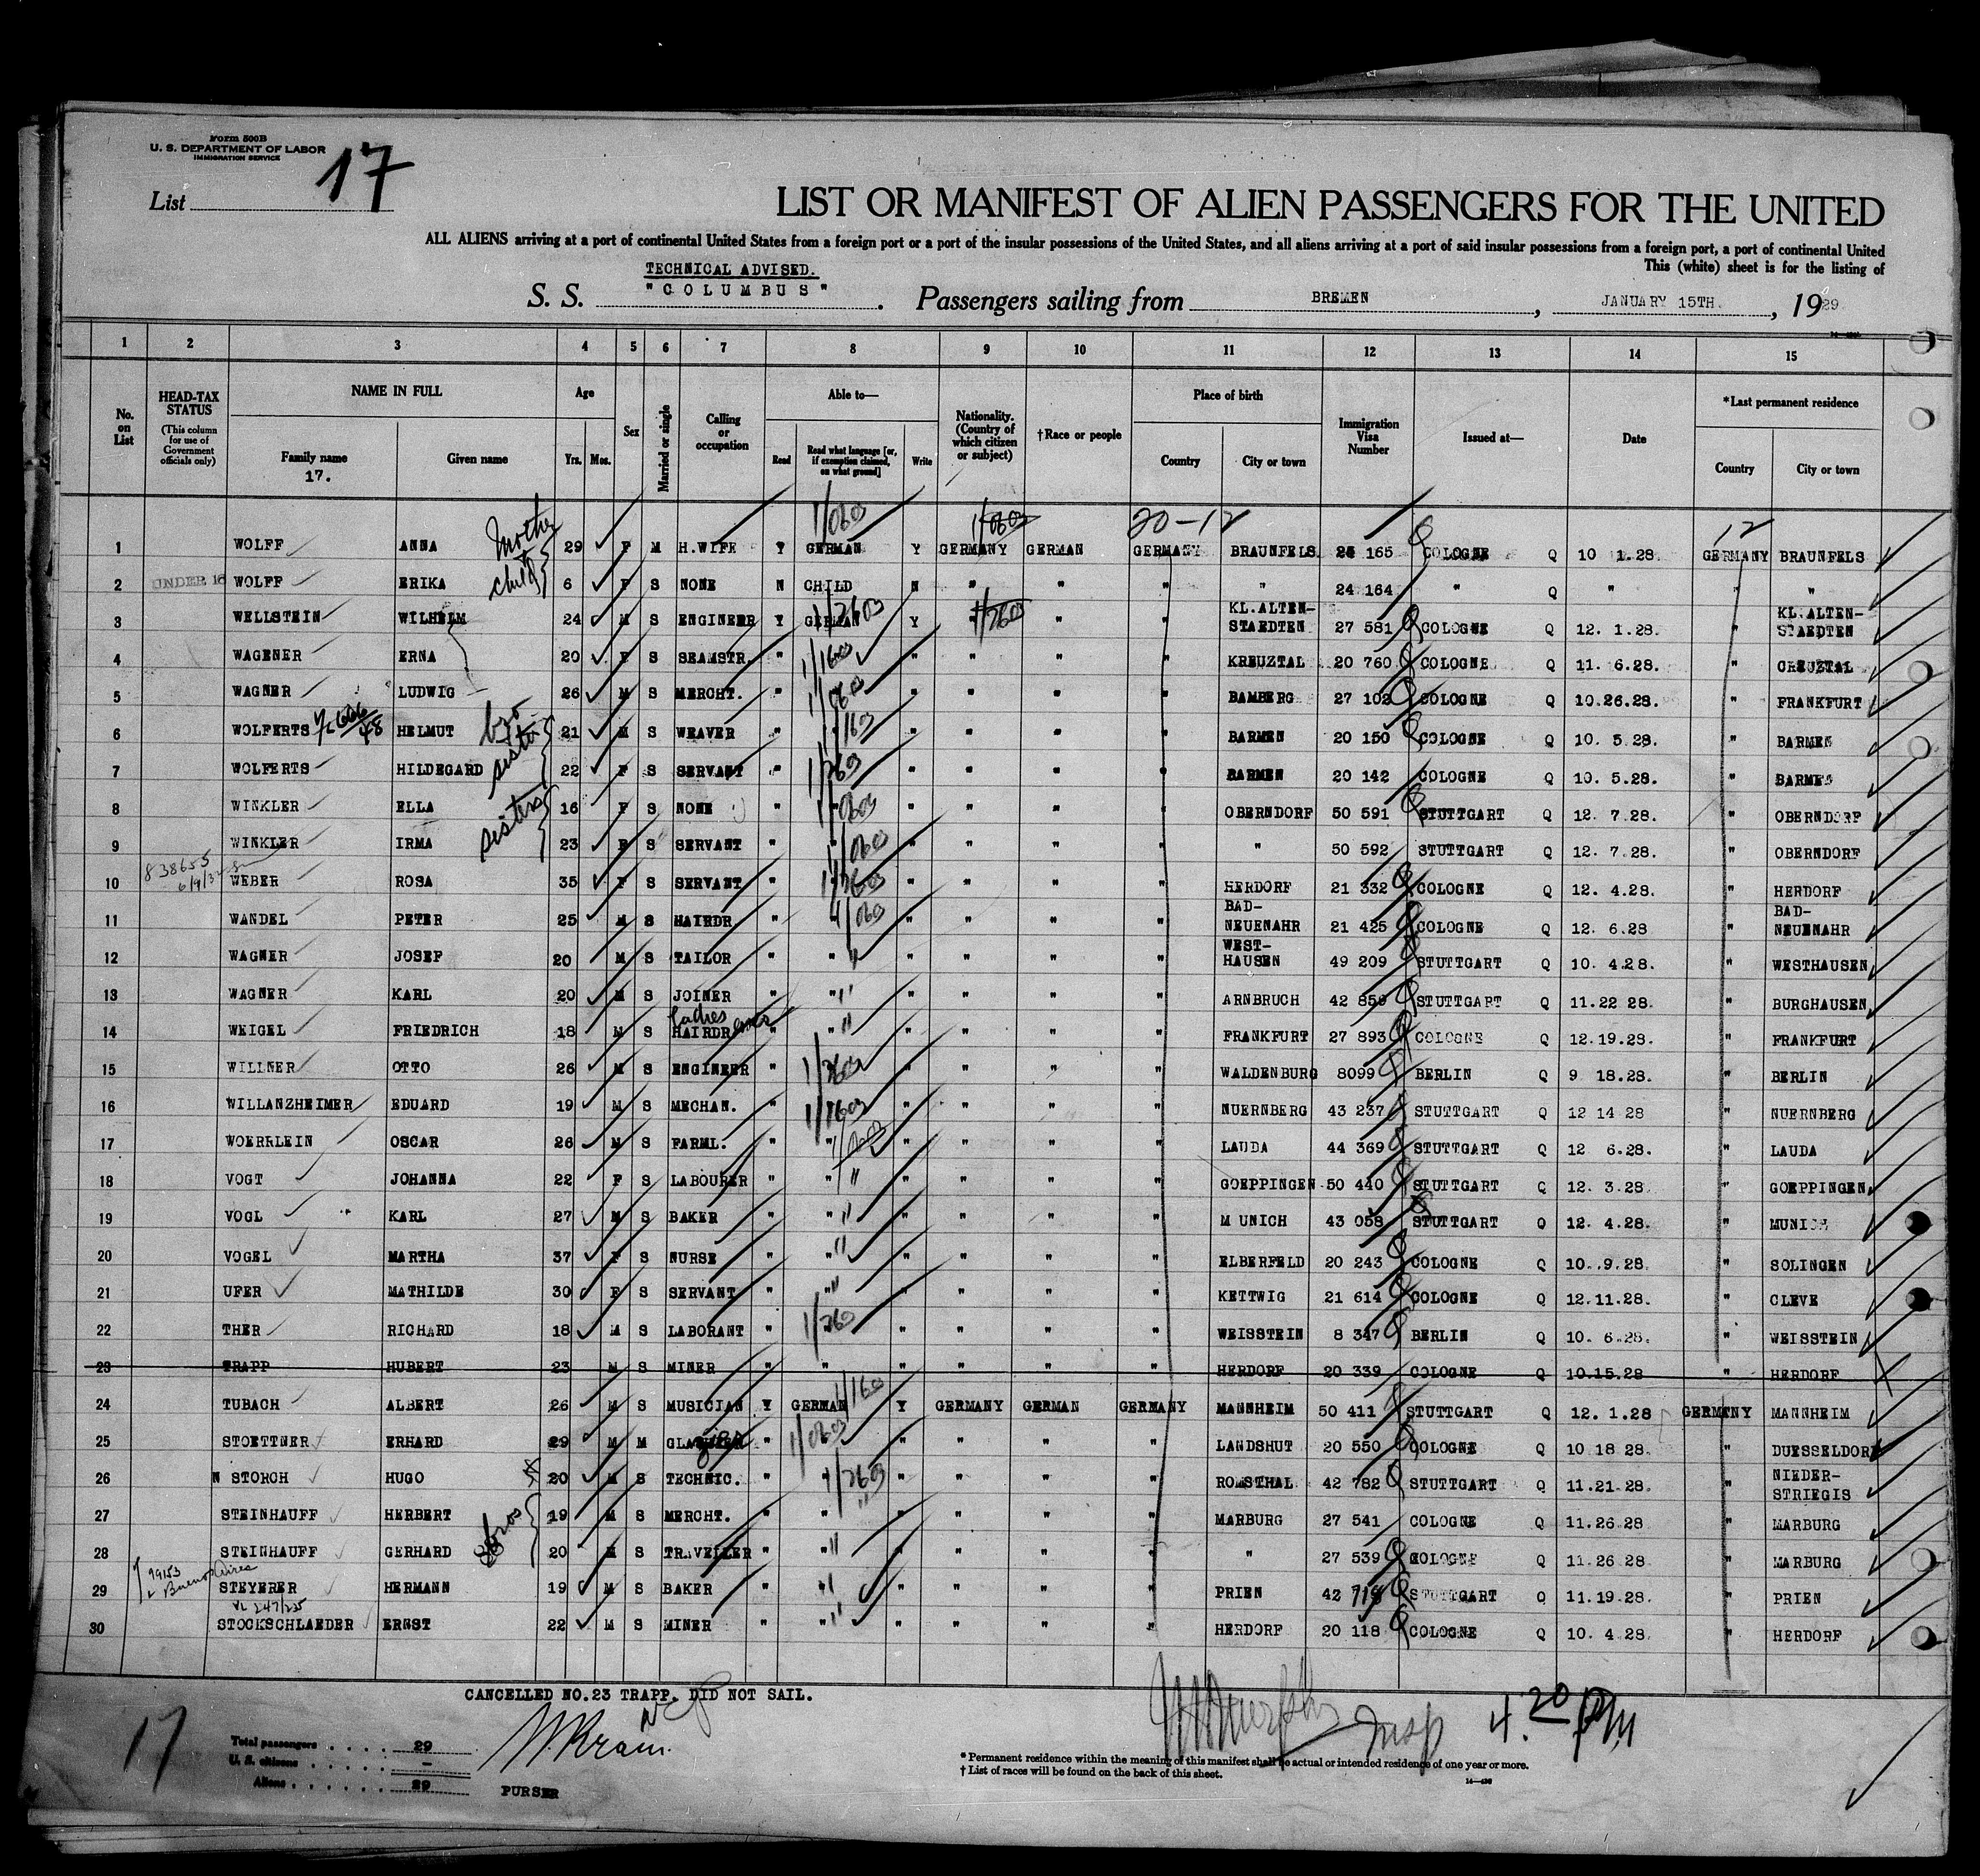 Form 500B
U. S. DEPARTMENT OF LABOR
IMMIGRATION SERVICE
List 17
LIST OR MANIFEST OF ALIEN PASSENGERS FOR THE UNITED
ALL ALIENS arriving at a port of continental United States from a foreign port or a port of the insular possessions of the United States, and all aliens arriving at a port of said insular possessions from a foreign port, a port of continental United
This (white) sheet is for the listing of
TECHNICAL ADVISED.
S. S. "COLUMBUS". Passengers sailing from BREMEN, JANUARY 15TH., 1929.
1 2 3 4 5 6 7 8 9 10 11 12 13 14 15
No. on List
HEAD-TAX STATUS (This column for use of Government officials only)
NAME IN FULL
Family name
17.
Given name
Age
Yrs. Mos.
Sex
Married or single
Calling or occupation
Able to—
Read
Read what language [or, if exemption claimed, on what ground]
Write
Nationality. (Country of which citizen or subject)
†Race or people
Place of birth
Country
City or town
Immigration Visa Number
Issued at—
Date
*Last permanent residence
Country
City or town
20-12
12
1 WOLFF ANNA mother 29 F M H.WIFE Y GERMAN Y GERMANY GERMAN GERMANY BRAUNFELS 24 165 COLOGNE Q 10 1.28. GERMANY BRAUNFELS
2 UNDER 16 WOLFF ERIKA child 6 F S NONE N CHILD N " " " " 24 164 " Q " " "
3 WELLSTEIN WILHELM 24 M S ENGINEER Y GERMAN Y " " " KL.ALTEN-STAEDTEN 27 581 COLOGNE Q 12. 1.28. " KL.ALTEN-STAEDTEN
4 WAGENER ERNA 20 F S SEAMSTR. " " " " " KREUZTAL 20 760 COLOGNE Q 11. 6.28. " CREUZTAL
5 WAGNER LUDWIG 26 M S MERCHT. " " " " " BAMBERG 27 102 COLOGNE Q 10.26.28. " FRANKFURT
6 WOLFERTS HELMUT bro 21 M S WEAVER " " " " " " BARMEN 20 150 COLOGNE Q 10. 5.28. " BARMEN
7 WOLFERTS HILDEGARD sister 22 F S SERVANT " " " " " BARMEN 20 142 COLOGNE Q 10. 5.28. " BARMEN
8 WINKLER ELLA sisters 16 F S NONE " " " " " " OBERNDORF 50 591 STUTTGART Q 12. 7.28. " OBERNDORF
9 WINKLER IRMA 23 F S SERVANT " " " " " " " 50 592 STUTTGART Q 12. 7.28. " OBERNDORF
10 WEBER ROSA 35 F S SERVANT " " " " " " HERDORF 21 332 COLOGNE Q 12. 4.28. " HERDORF
11 WANDEL PETER 25 M S HAIRDR. " " " " " " BAD-NEUENAHR 21 425 COLOGNE Q 12. 6.28 " BAD-NEUENAHR
12 WAGNER JOSEF 20 M S TAILOR " " " " " " WEST-HAUSEN 49 209 STUTTGART Q 10. 4.28. " WESTHAUSEN
13 WAGNER KARL 20 M S JOINER " " " " " " ARNBRUCH 42 859 STUTTGART Q 11.22 28. " BURGHAUSEN
14 WEIGEL FRIEDRICH 18 M S ladies HAIRDResser " " " " " " FRANKFURT 27 893 COLOGNE Q 12.19.28. " FRANKFURT
15 WILLNER OTTO 26 M S ENGINEER " " " " " WALDENBURG 8099 BERLIN Q 9 18.28. " BERLIN
16 WILLANZHEIMER EDUARD 19 M S MECHAN. " " " " " NUERNBERG 43 237 STUTTGART Q 12 14 28 " NUERNBERG
17 WOERRLEIN OSCAR 26 M S FARML. " " " " " " LAUDA 44 369 STUTTGART Q 12 6.28. " LAUDA
18 VOGT JOHANNA 22 F S LABOURER " " " " " " GOEPPINGEN 50 440 STUTTGART Q 12. 3.28. " GOEPPINGEN
19 VOGL KARL 27 M S BAKER " " " " " " MUNICH 43 058 STUTTGART Q 12. 4.28. " MUNICH
20 VOGEL MARTHA 37 F S NURSE " " " " " " ELBERFELD 20 243 COLOGNE Q 10. .9.28. " SOLINGEN
21 UFER MATHILDE 30 F S SERVANT " " " " " " KETTWIG 21 614 COLOGNE Q 12.11.28. " CLEVE
22 THER RICHARD 18 M S LABORANT " " " " " WEISSTEIN 8 347 BERLIN Q 10. 6.28. " WEISSTEIN
23 TRAPP HUBERT 23 M S MINER " " " " " " HERDORF 20 339 COLOGNE Q 10.15.28 " HERDORF
24 TUBACH ALBERT 26 M S MUSICIAN Y GERMAN Y GERMANY GERMAN GERMANY MANNHEIM 50 411 STUTTGART Q 12. 1.28 GERMANY MANNHEIM
25 STOETTNER ERHARD 29 M M " " " " " LANDSHUT 20 550 COLOGNE Q 10 18 28. " DUESSELDORF
26 STORCH HUGO 20 M S TECHNIC. " " " " " " 42 782 STUTTGART Q 11.21.28. " NIEDER-STRIEGIS
27 STEINHAUFF HERBERT bros 19 M S MERCHT. " " " " " " MARBURG 27 541 COLOGNE Q 11.26.28 " MARBURG
28 STEINHAUFF GERHARD 20 M S TRAVELLER " " " " " " " 27 539 COLOGNE Q 11.26 28. " MARBURG
29 Buenos Aires STEYERER HERMANN 19 M S BAKER " " " " " " PRIEN 42 STUTTGART Q 11.19.28. " PRIEN
30 STOCKSCHLAEDER ERNST 22 M S MINER " " " " " " HERDORF 20 118 COLOGNE Q 10. 4.28. " HERDORF
CANCELLED NO.23 TRAPP. DID NOT SAIL.
17
Total passengers . . . . 29
U. S. citizens . . . . . -
Aliens . . . . . . 29
PURSER
Insp 4.20 PM
* Permanent residence within the meaning of this manifest shall be actual or intended residence of one year or more.
† List of races will be found on the back of this sheet.